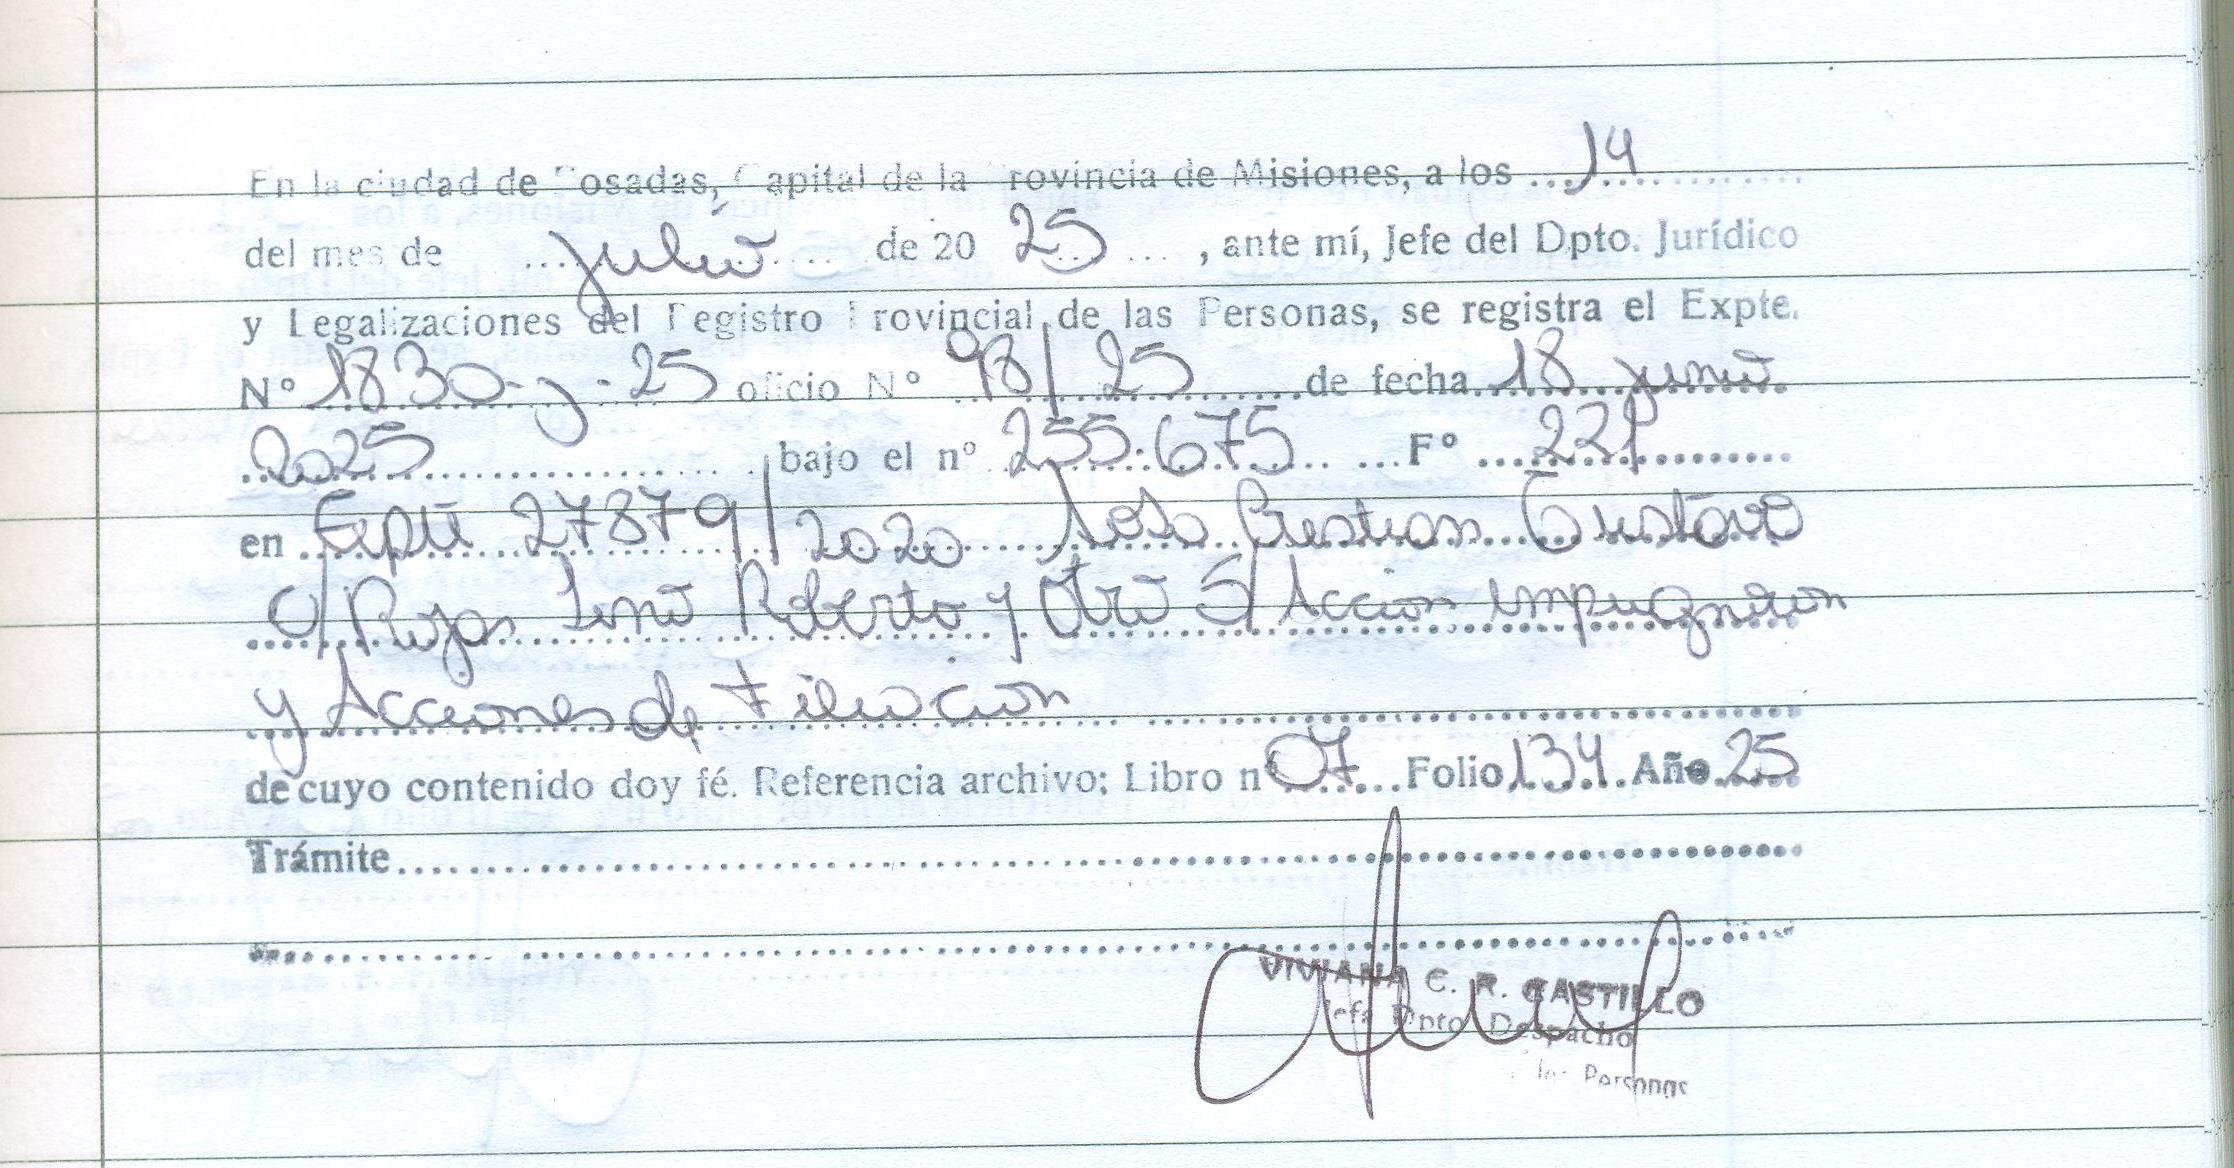 En la ciudad de Posadas, Capital de la Provincia de Misiones, a los ... 14
del mes de julio de 20 25 , ante mí, Jefe del Dpto. Jurídico
y Legalizaciones del Registro Provincial de las Personas, se registra el Expte.
N° 1830-J-25 oficio N° 98/25 de fecha 18 junio
2025 bajo el n° 255.675 F° 221
en Expte 27879/2020 Sosa Cristian Gustavo
c/ Rojas Roberto y Otro S/ Accion impugnacion
y Acciones de Filiacion
de cuyo contenido doy fé. Referencia archivo: Libro n° 07 Folio 134 Año 25
Trámite
VIVIANA C. R. CASTILLO
Jefa Dpto. Despacho
las Personas